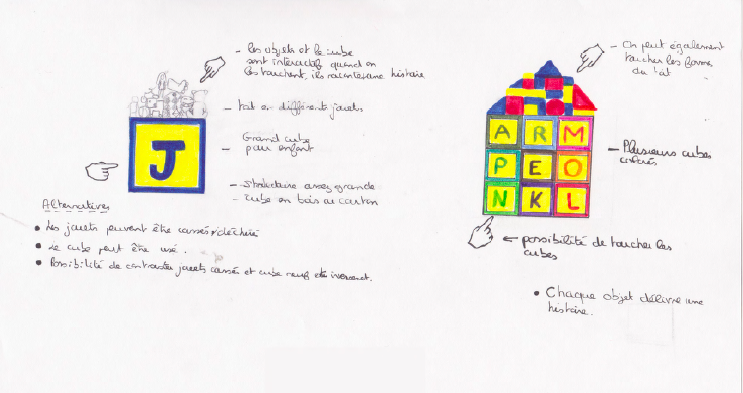 - les objets et le cube
sont interactifs quand on
les touchent, ils racontent une histoire
- toit en différents jouets
- Grand cube
pour enfant
- structure assez grande
- cube en bois ou carton
J
Alternatives
• Les jouets peuvent être cassés/déchiré
• Le cube peut être usé.
• Possibilité de contraster jouets cassés et cube neuf et inversement.
- On peut également
toucher les formes
du toit
A R M
P E O
N K L
- Plusieurs cubes
colorés
← possibilité de toucher les
cubes
• Chaque objet délivre une
histoire.